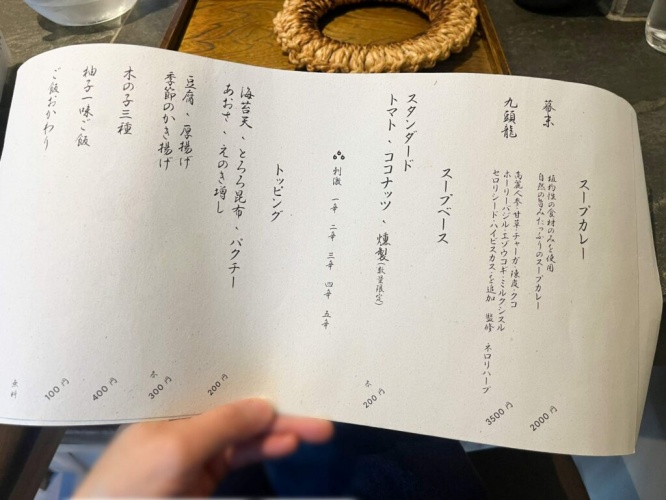 スープカレー
幕末 2000円
植物性の食材のみを使用
自然の旨みたっぷりのスープカレー
九頭龍 3500円
高麗人参・甘草・チャーガ・陳皮・クコ
ホーリーバジル・エゾウコギ・ミルクシスル
セロリシード・ハイビスカス・を追加 監修 ネロリハーブ
スープベース
スタンダード
トマト、ココナッツ、燻製(数量限定) 各200円
刺激 一辛 二辛 三辛 四辛 五辛
トッピング
海苔天、とろろ昆布、パクチー
あおさ、えのき増し 200円
豆腐、厚揚げ
季節のかき揚げ 各300円
木の子三種 400円
柚子一味ご飯 100円
ご飯おかわり 無料